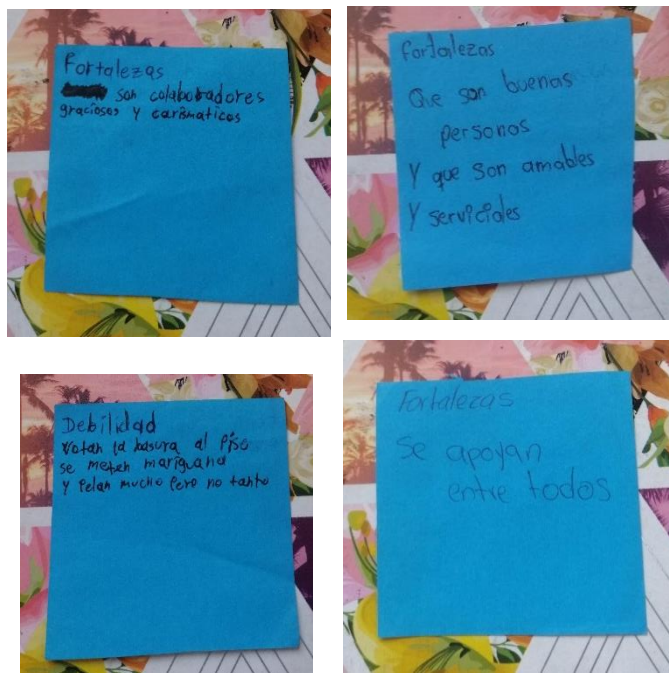 Fortalezas
son colaboradores
graciosos y carismaticos
fortalezas
Que son buenas
personas
Y que son amables
Y serviciales
Debilidad
votan la basura al piso
se meten mariguana
y pelan mucho pero no tanto
Fortalezas
se apoyan
entre todos